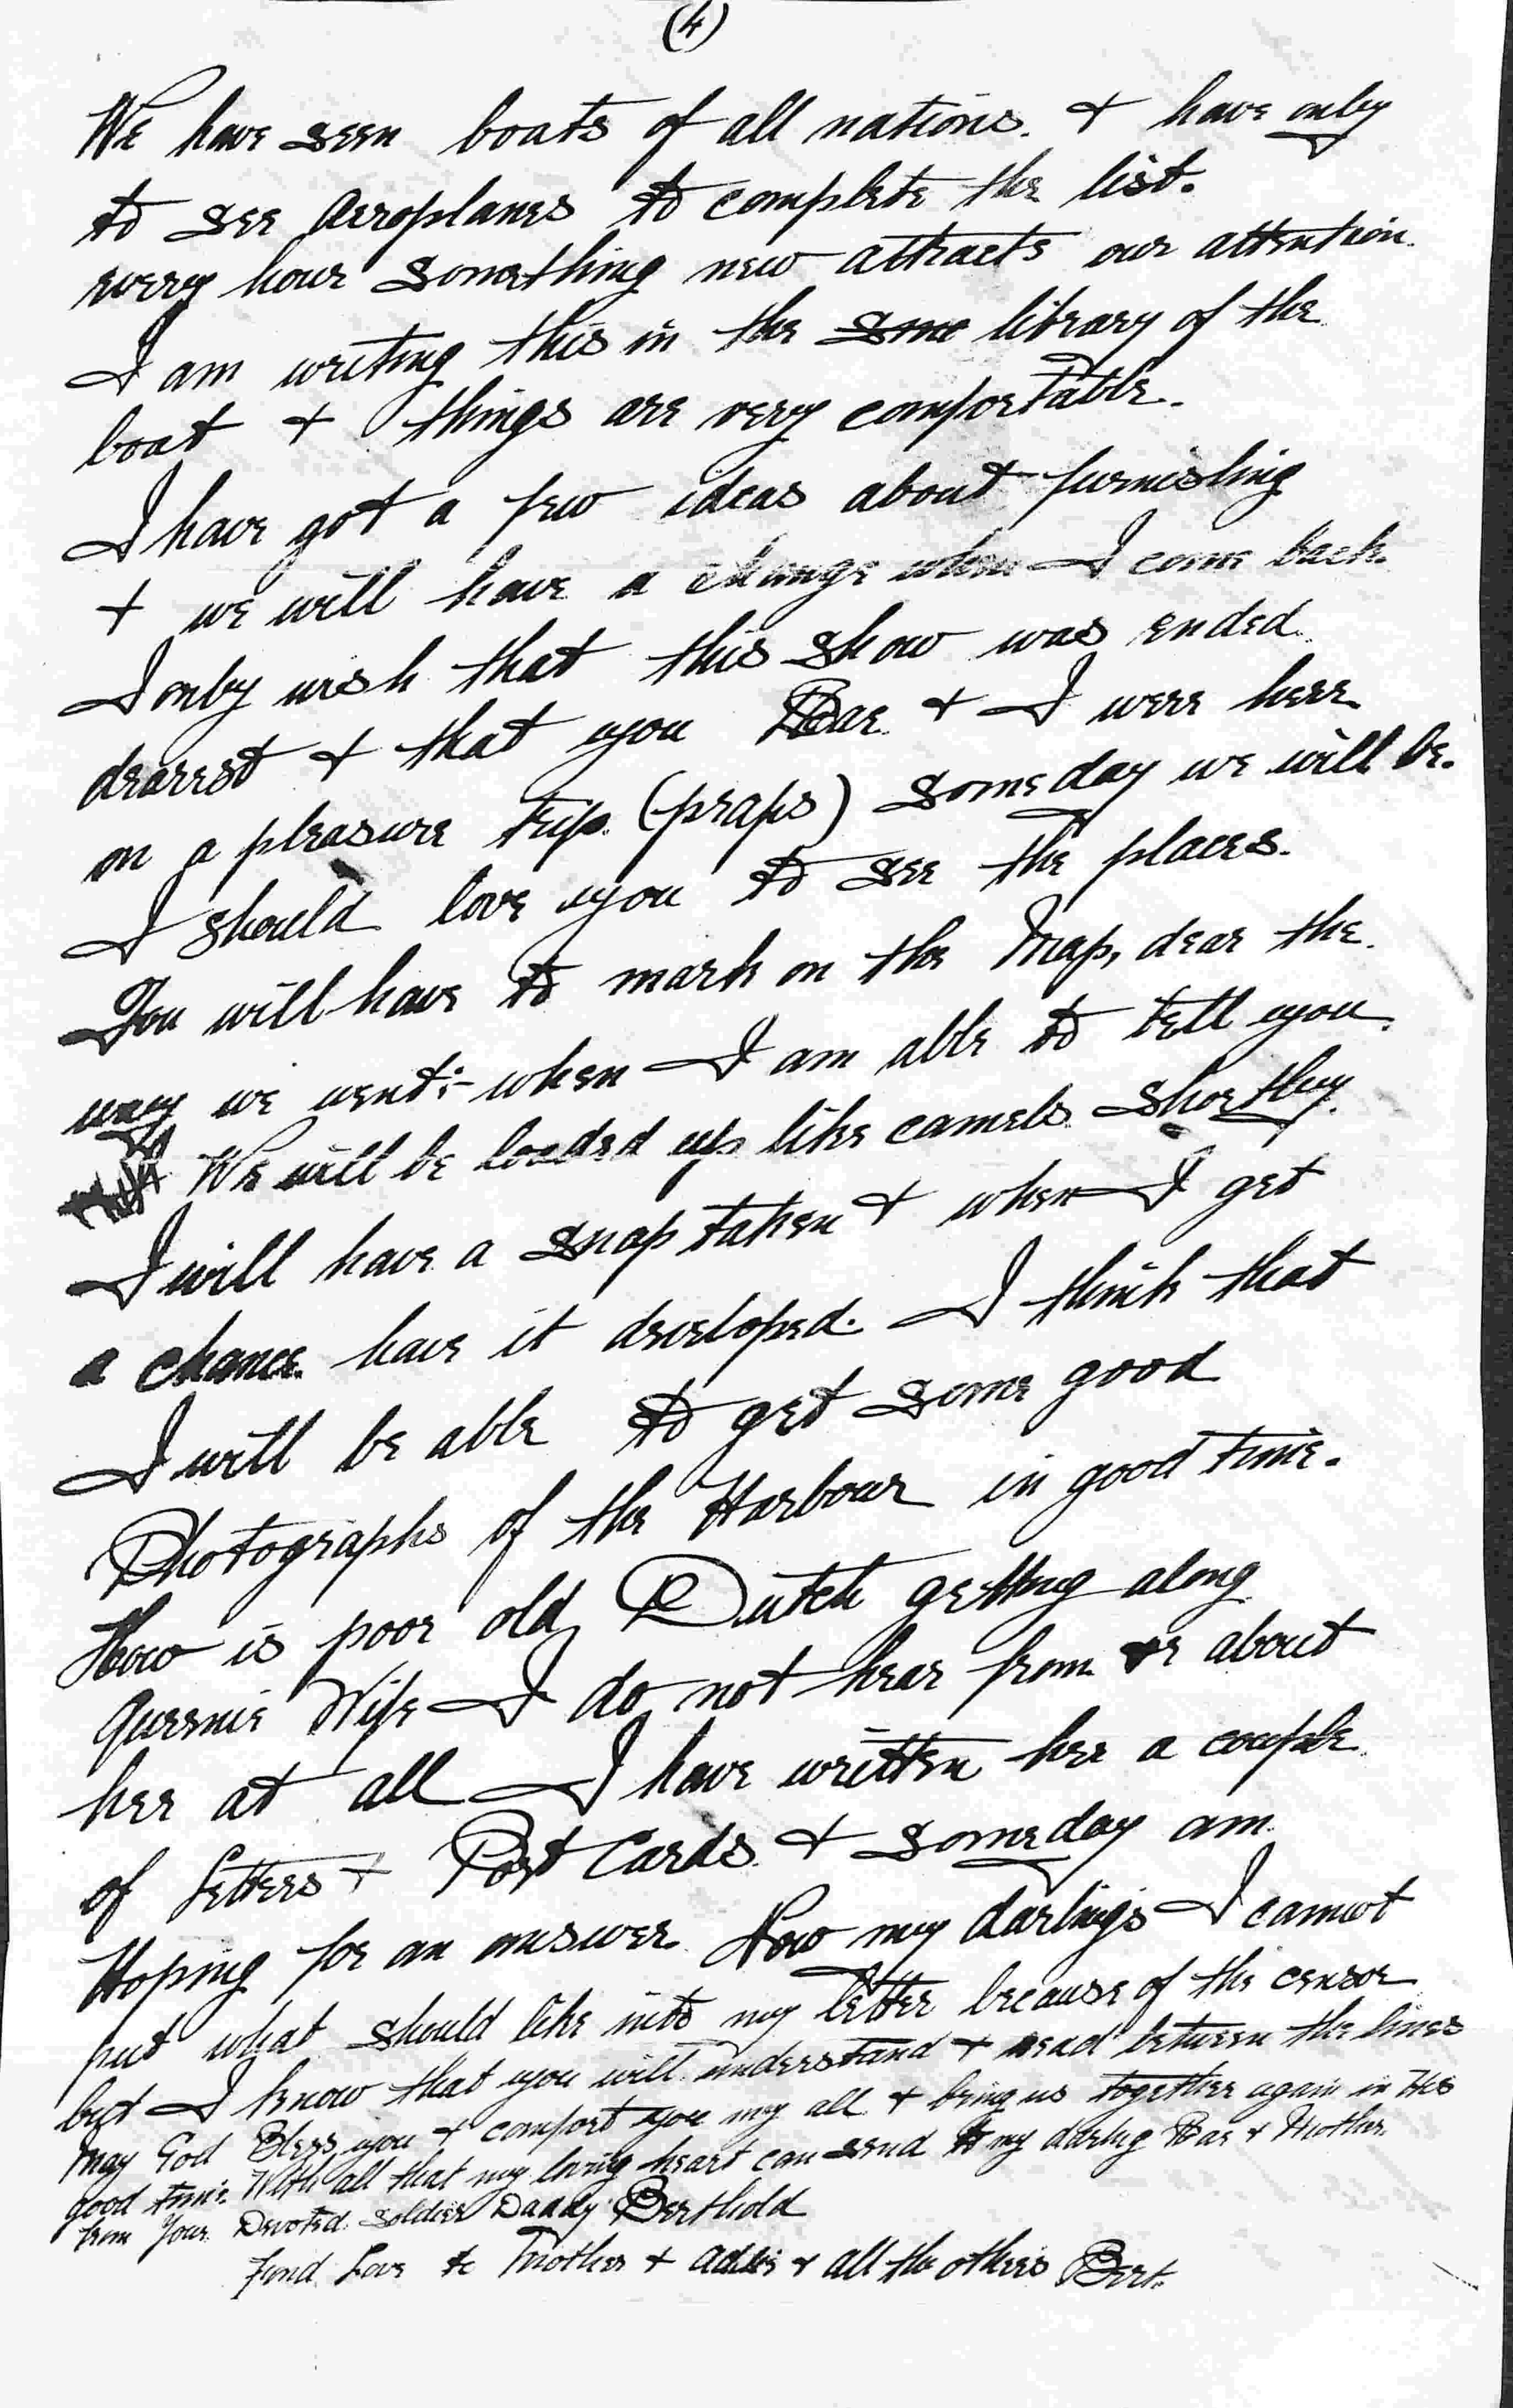 (4)
We have seen boats of all nations. & have only
to see Aeroplanes to complete the list.
every hour Something new attracts our attention.
I am writing this in the library of the
boat & things are very comfortable.
I have got a few ideas about furnishing
& we will have a change when I come back.
I only wish that this show was ended.
dearest & that you Bae. & I were here
on a pleasure trip. (praps) Someday we will be.
I should love you to see the places.
You will have to mark on the Map, dear the
way we went:- when I am able to tell you.
We will be loaded up like camels shortly.
I will have a snap taken & when I get
a chance. have it developed. I think that
I will be able to get some good
Photographs of the Harbour in good time.
How is poor old Dutch getting along
Queenie Wife I do not hear from or about
her at all I have written her a couple
of Letters & Post Cards. & Someday am
Hoping for an answer. Now my darlings I cannot
put what should like into my letter because of the censor
but I know that you will understand & read between the lines
May God Bless you & comfort you my all & bring us together again in His
good time. With all that my loving heart can send to my darling Bae & Mother.
from Your Devoted Soldier Daddy Berthold
Fond Love to Mother & Addie & all the others Bert.